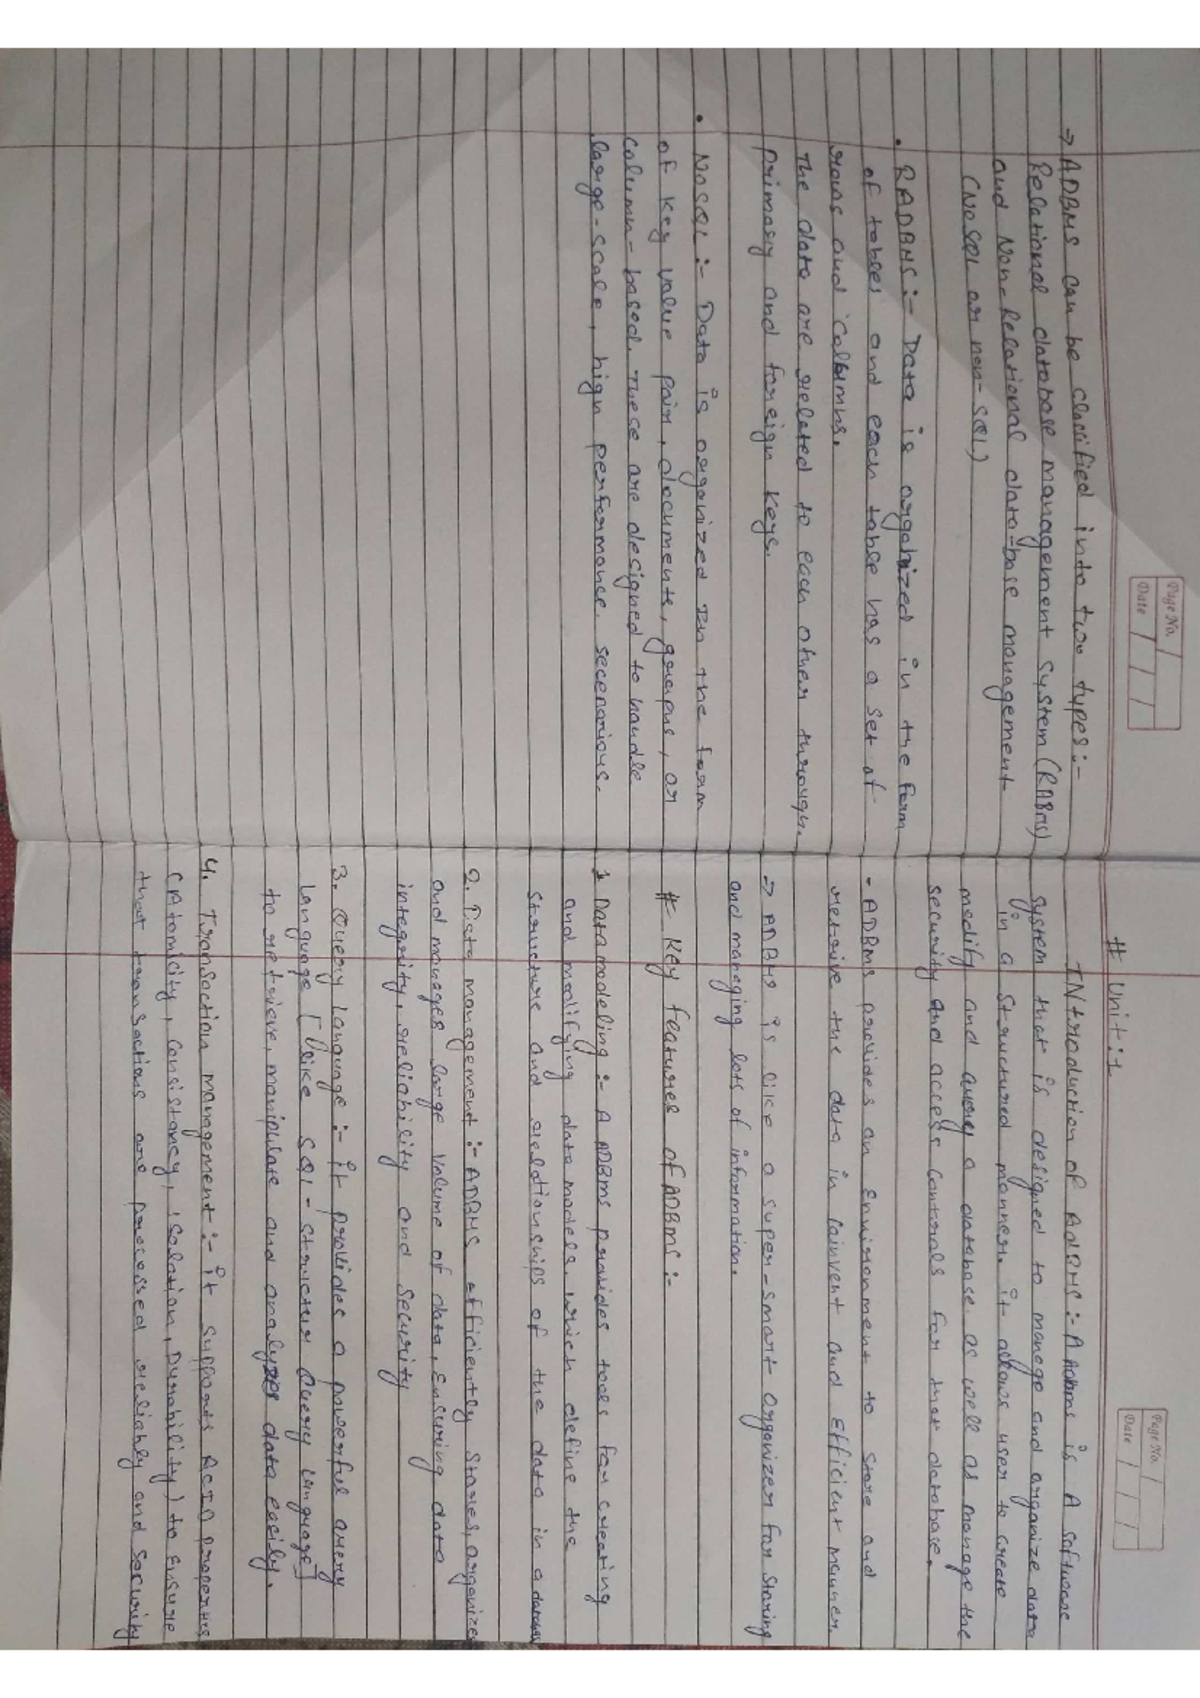 Page No.
Date
→ ADBMS can be classified into two types:-
Relational database management system (RABMS)
and Non-Relational data-base management
(NoSQL or non-SQL)
• RADBMS:- Data is organized in the form
of tables and each table has a set of
rows and columns.
The data are related to each other through
primary and foreign keys.
• NoSQL:- Data is organized in the form
of key value pair, documents, graphs, or
column-based. These are designed to handle
large-scale, high performance. secenarious.
Page No.
Date
# Unit:1
INtroduction of AdBMS:- A Adbms is A software
system that is designed to manege and organize data
in a structured manner. it allows user to create
modify and query a database. as well as manage the
security and access controls for that database.
- ADBMS provides an Enviironment to store and
retrive the data in coinvent and Efficient manner.
→ ADBMS is like a super-smart organizer for storing
and maneging lots of information.
# Key features of ADBMS:-
1 Data modeling:- A ADBMS provides tools for creating
and modifying data models, which define the
structure and relationships of the data in a
2. Data management:- ADBMS efficiently Stores, organizes
and manages large volume of data, Ensuring data
integrity, reliability and security
3. Query Language:- it provides a powerful query
language [like SQL-
Query language]
to retrieve, manipulate and analyzes data easily.
4. Transaction mangement:- it supports ACID properties
(Atomicity, Consistancy, isolation, Durability) to Ensure
that transactions are processed reliably and security